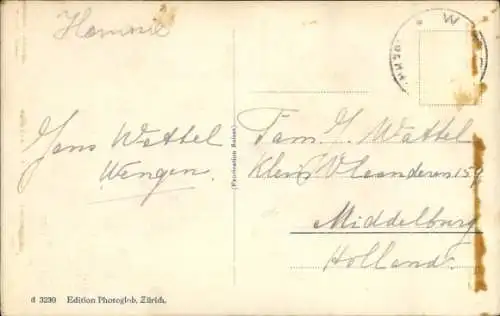 Hommie
Jans Wattel
Wengen
(Fabrication Suisse)
Fam. J. Wattel
Klein Vlaanderen 159
Middelburg
Holland.
d 3230 Edition Photoglob, Zürich.